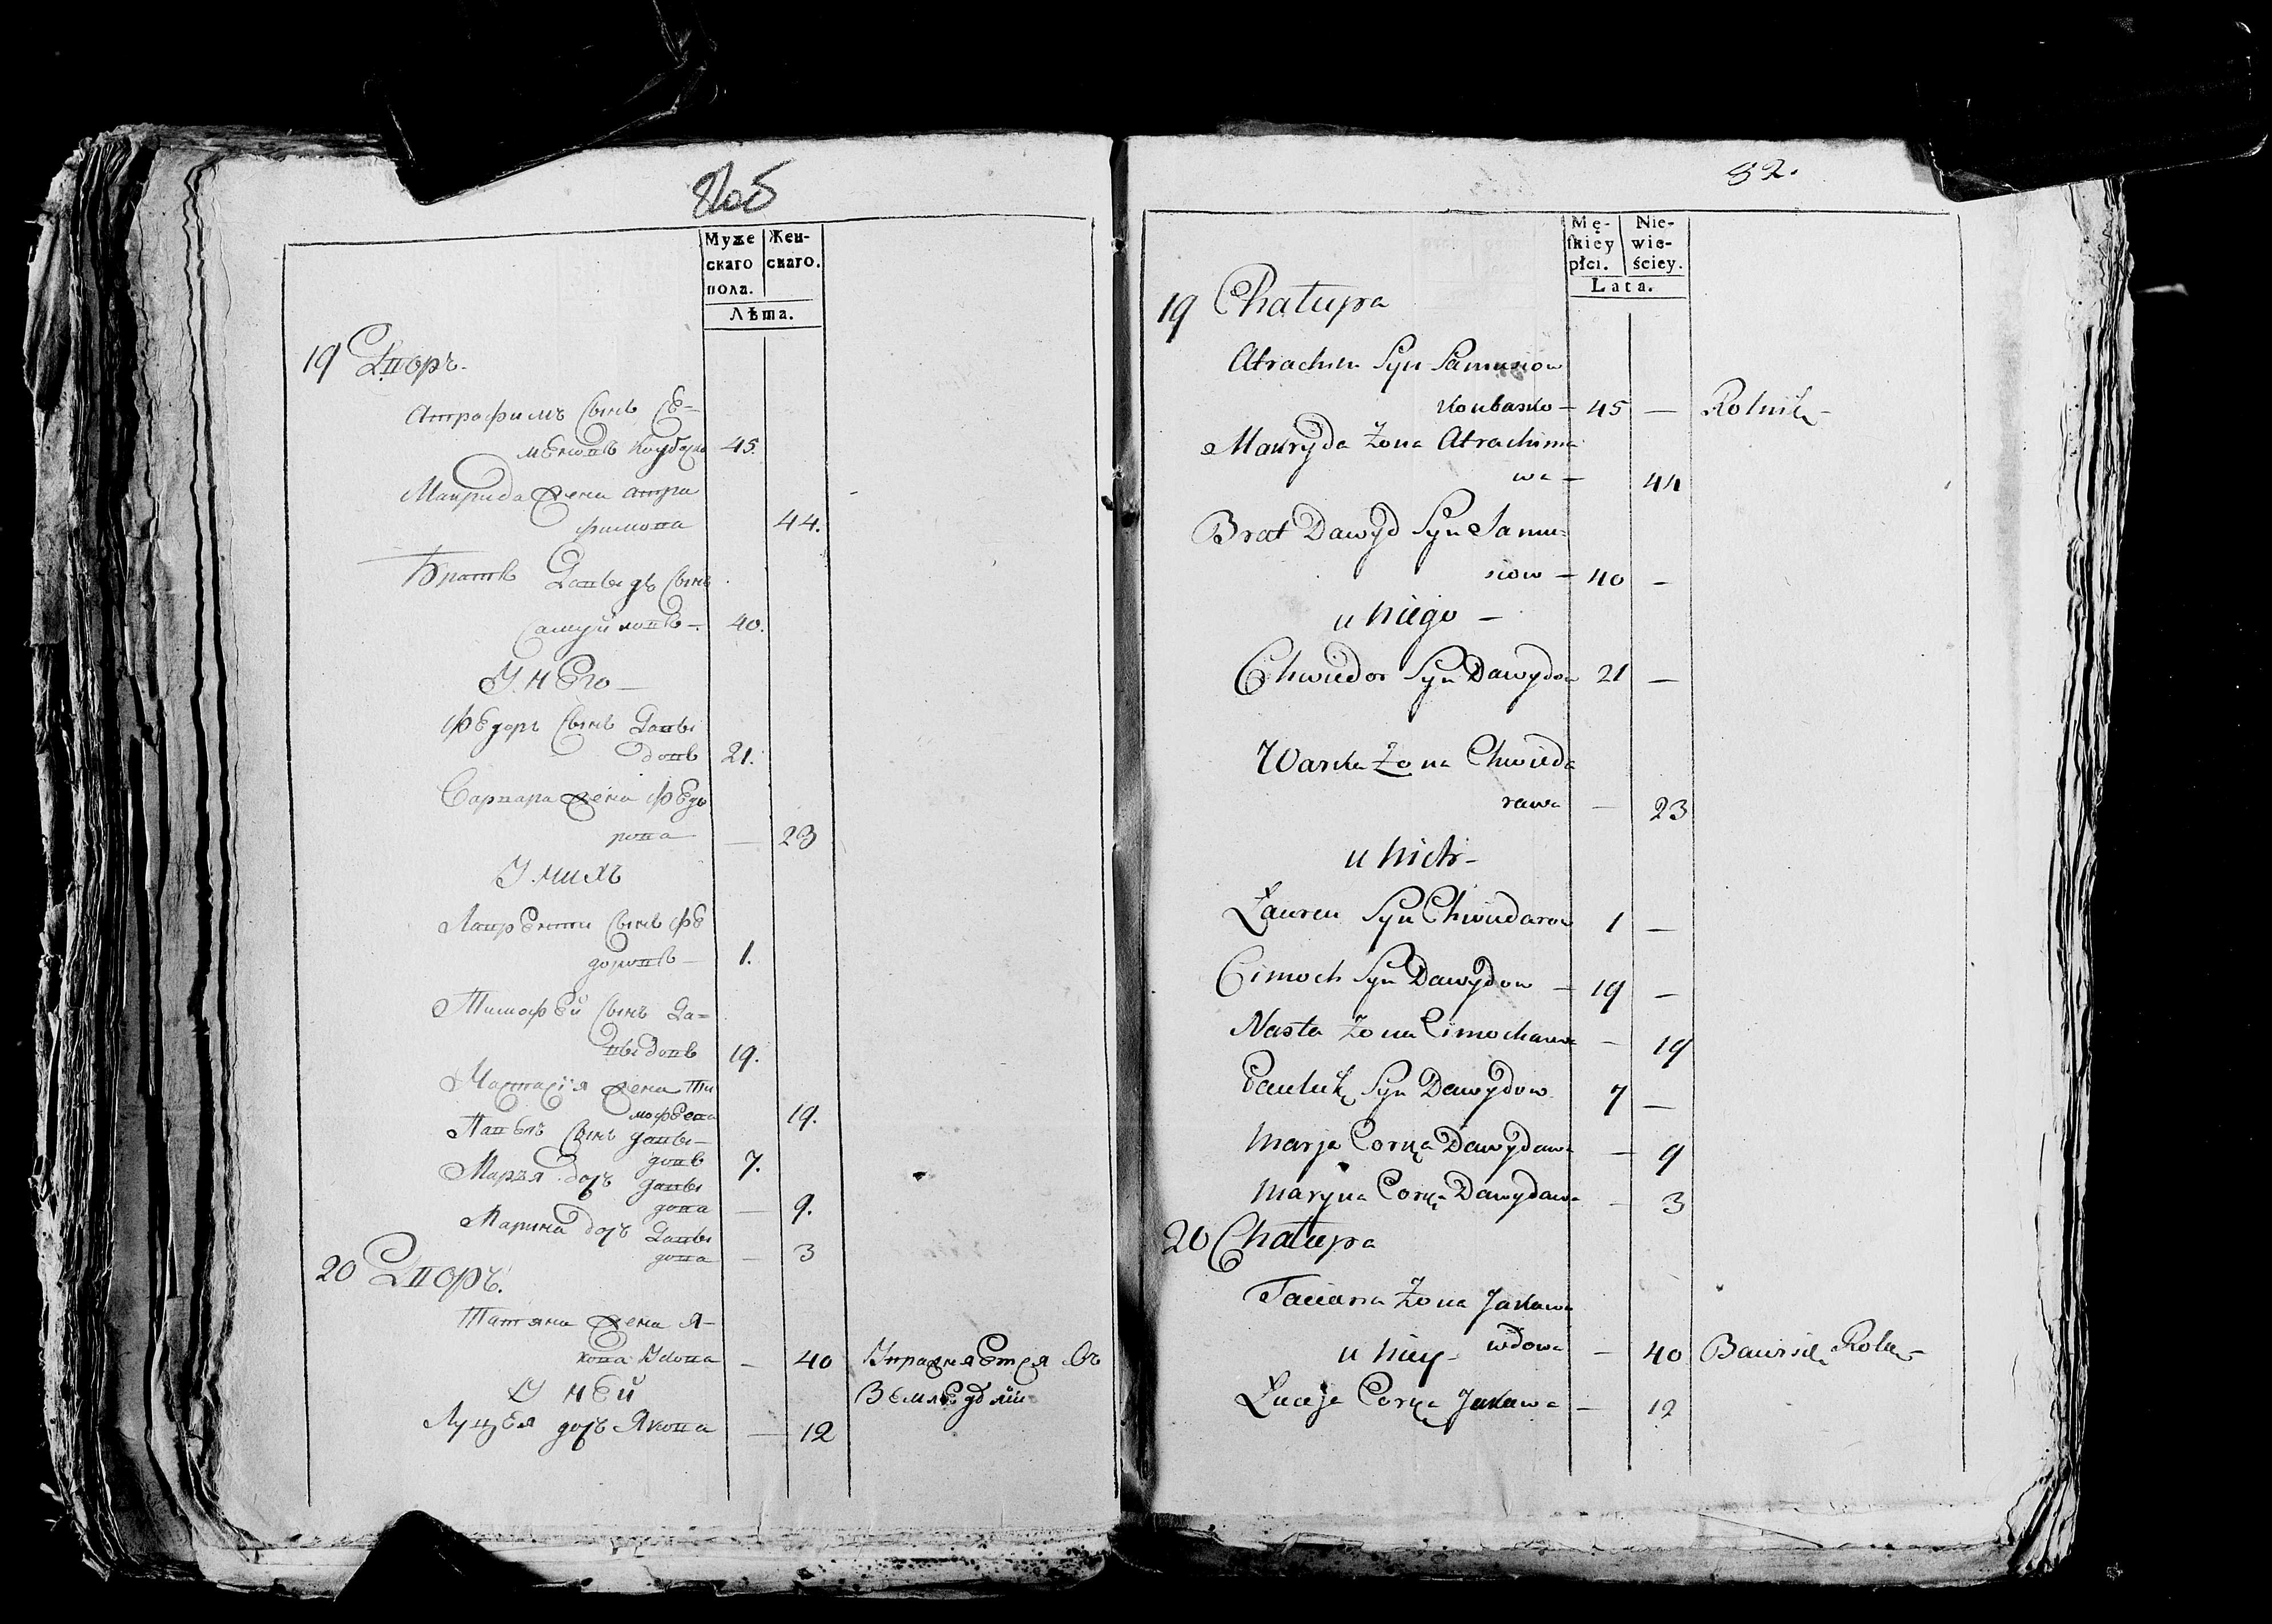 81 об
Муже
скаго
пола.
Жен-
скаго.
Лѣта.
19 Дворъ.
Атрофимъ Сынъ Се-
меновъ Коубаско 45.
Маврида жена Атра
фимова 44.
Братъ Давыдъ Сынъ
Самуйловъ - 40.
У него -
Федоръ Сынъ Давы
довъ 21.
Варвара жена Федо
рова - 23
У нихъ
Лаврентий Сынъ Фе
доровъ - 1.
Тимофей Сынъ Да=
выдовъ 19.
Настасiя жена Ти
мофеева 19.
Павелъ Сынъ Давы-
довъ 7.
Марья дочъ Давы
дова - 9.
Марина дочъ Давы
дова - 3
20 Дворъ.
Татяна жена Я-
кова Вдова - 40 Упражняется въ
У ней земледѣлiи
Луцея дочъ Якова - 12
82.
Mę-
ſkiey
płci.
Nie-
wie-
ściey.
Lata.
19 Chałupa
Atrachim Syn Samusiow
Koubasko - 45 - Rolnik -
Mauryda Żona Atrachimo
wa - 44
Brat Dawyd Syn Samu=
siow - 40 -
u niego -
Chwiedor Syn Dawydow 21 -
Warka Żona Chwieda
rawa - 23
u nich -
Łauren Syn Chwiedarow 1 -
Cimoch Syn Dawydow - 19 -
Nasta Żona Cimochawa - 19
Pauluk Syn Dawydow 7 -
Marja Corka Dawydawa - 9
Maryna Corka Dawydawa - 3
20 Chałupa
Taciana Żona Jakawa
wdowa - 40 Bawi się Rolą -
u niey -
Łuceja Corka Jakawa - 12